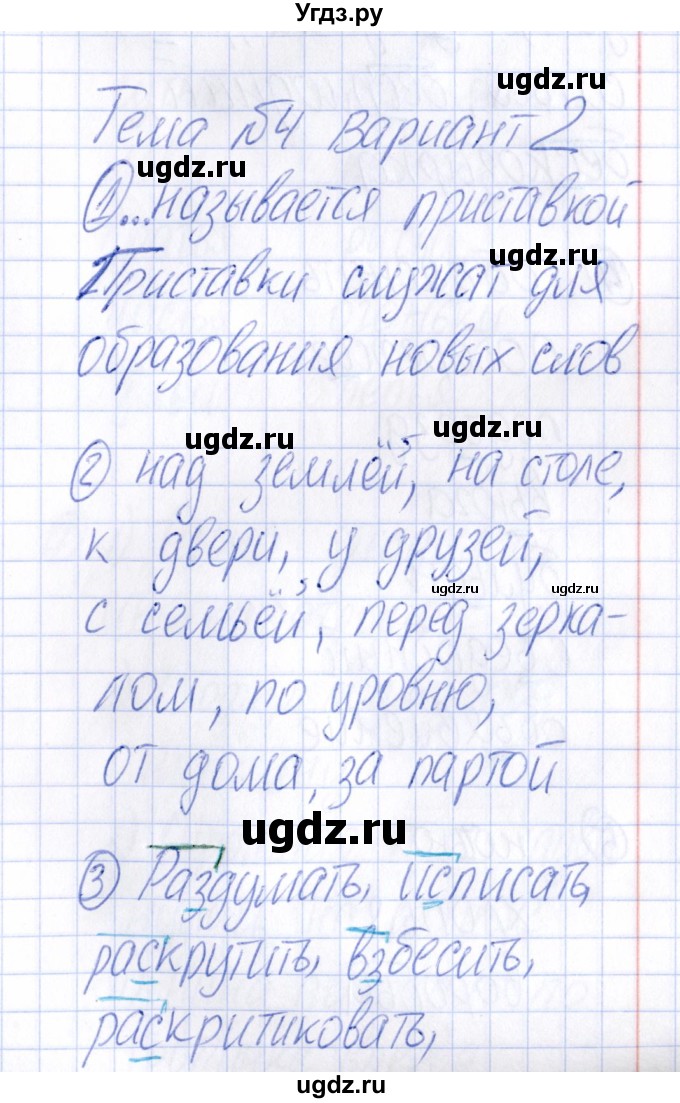 Угдз.ру
ugdz.ru
Тема №4 Вариант 2
ugdz.ru
① ...называется приставкой
ugdz.ru
Приставки служат для
образования новых слов
ugdz.ru ugdz.ru
② над землёй, на столе,
к двери, у друзей,
ugdz.ru ugdz.ru
с семьёй, перед зерка-
лом, по уровню,
от дома, за партой
ugdz.ru
③ Раздумать, исписать,
раскрутить, взбесить,
раскритиковать,
ugdz.ru